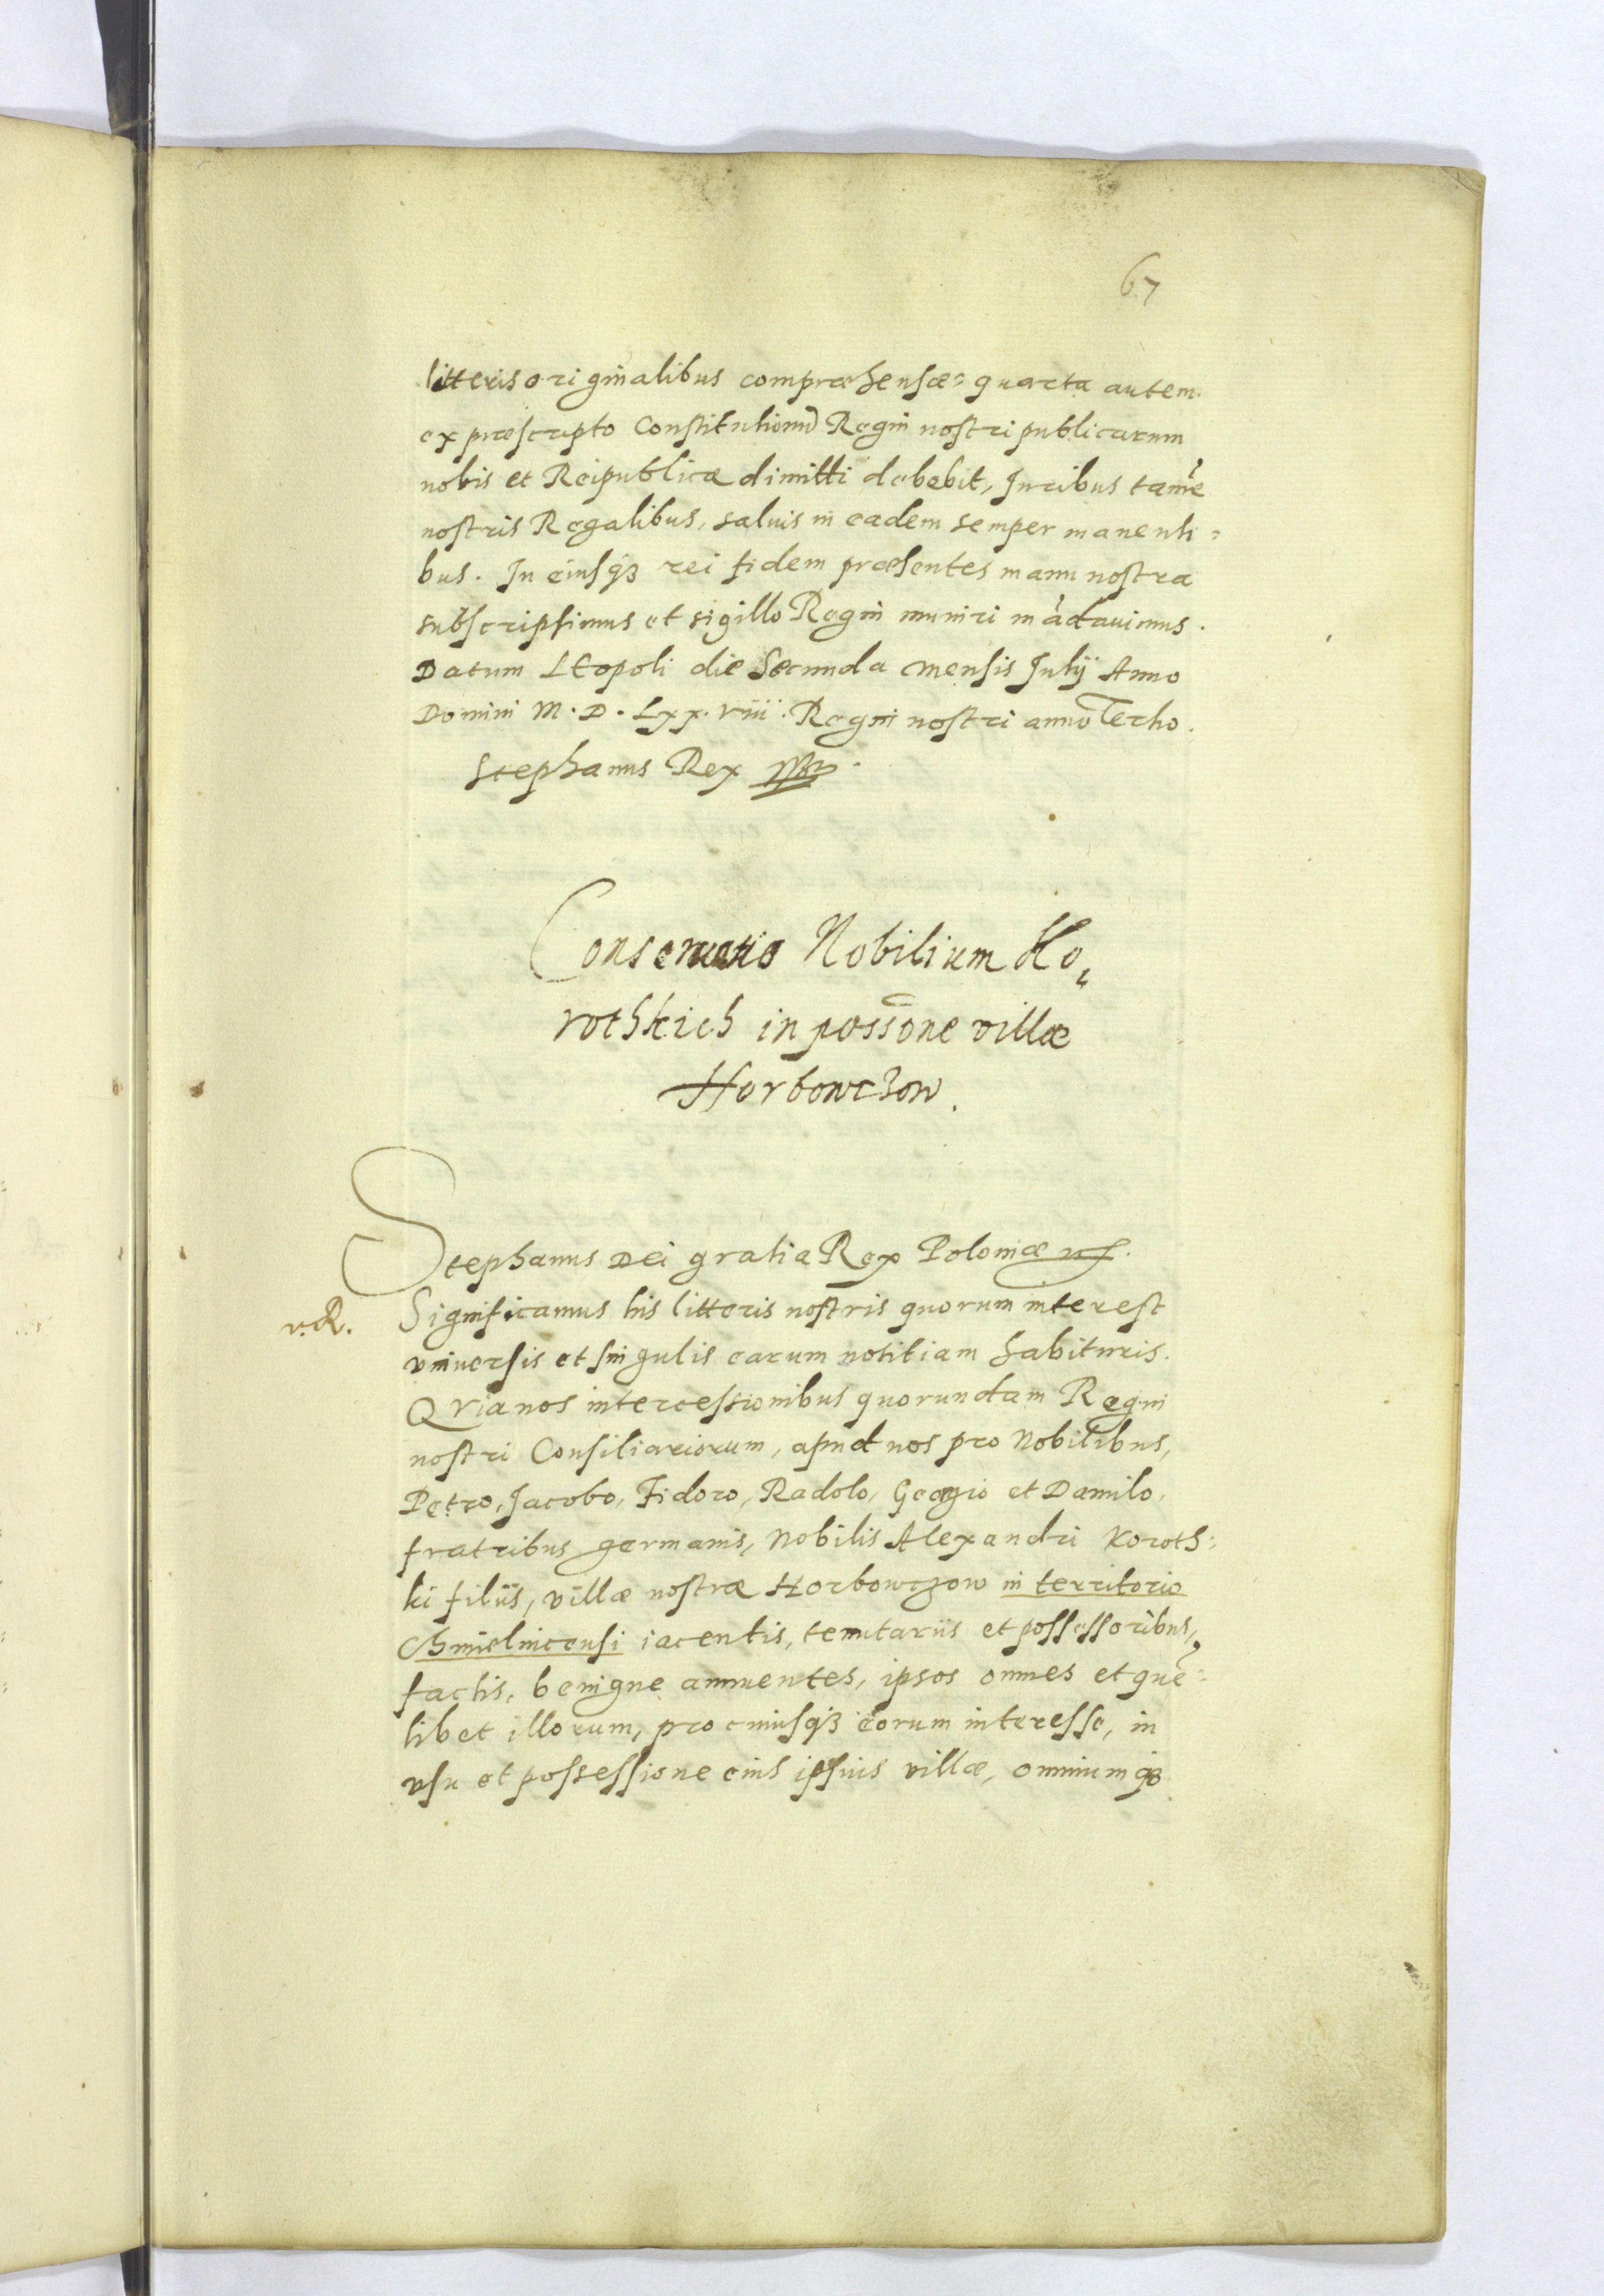 67
litteris originalibus compræhensæ: quarta autem
ex præscripto Constitutionū Regni nostri publicarum
nobis et Reipublicæ dimitti debebit, Iuribus tamē
nostris Regalibus, saluis in eadem semper manenti=
bus. In cuiusqȝ rei fidem præsentes manu nostra
subscripsimus et sigillo Regni muniri mādauimus.
Datum LEopoli die Secunda mensis Iulij Anno
Domini M.D.Lxx.viii. Regni nostri anno Tertio.
Stephanus Rex
Conseruatio Nobilium Ko„
rothkich in possōne villæ
Horbowczow.
Stephanus Dei gratia Rex Poloniæ
v.R.
Significamus his litteris nostris quorum interest
vniuersis et singulis earum notitiam habituris.
Qvia nos intercessionibus quorundam Regni
nostri Consiliariorum, apud nos pro Nobilibus,
Petro, Iacobo, Fidoro, Radolo, Georgio et Danilo,
fratribus germanis, Nobilis Alexandri Koroth:
ki filiis, villæ nostræ Horbowczow in territorio
Chmielnicensi iacentis, tenutariis et possessoribus,
factis, benigne annuentes, ipsos omnes et quē=
libet illorum, pro cuiusqȝ eorum interesse, in
vsu et possessione eius ipsius villæ, omniumqȝ